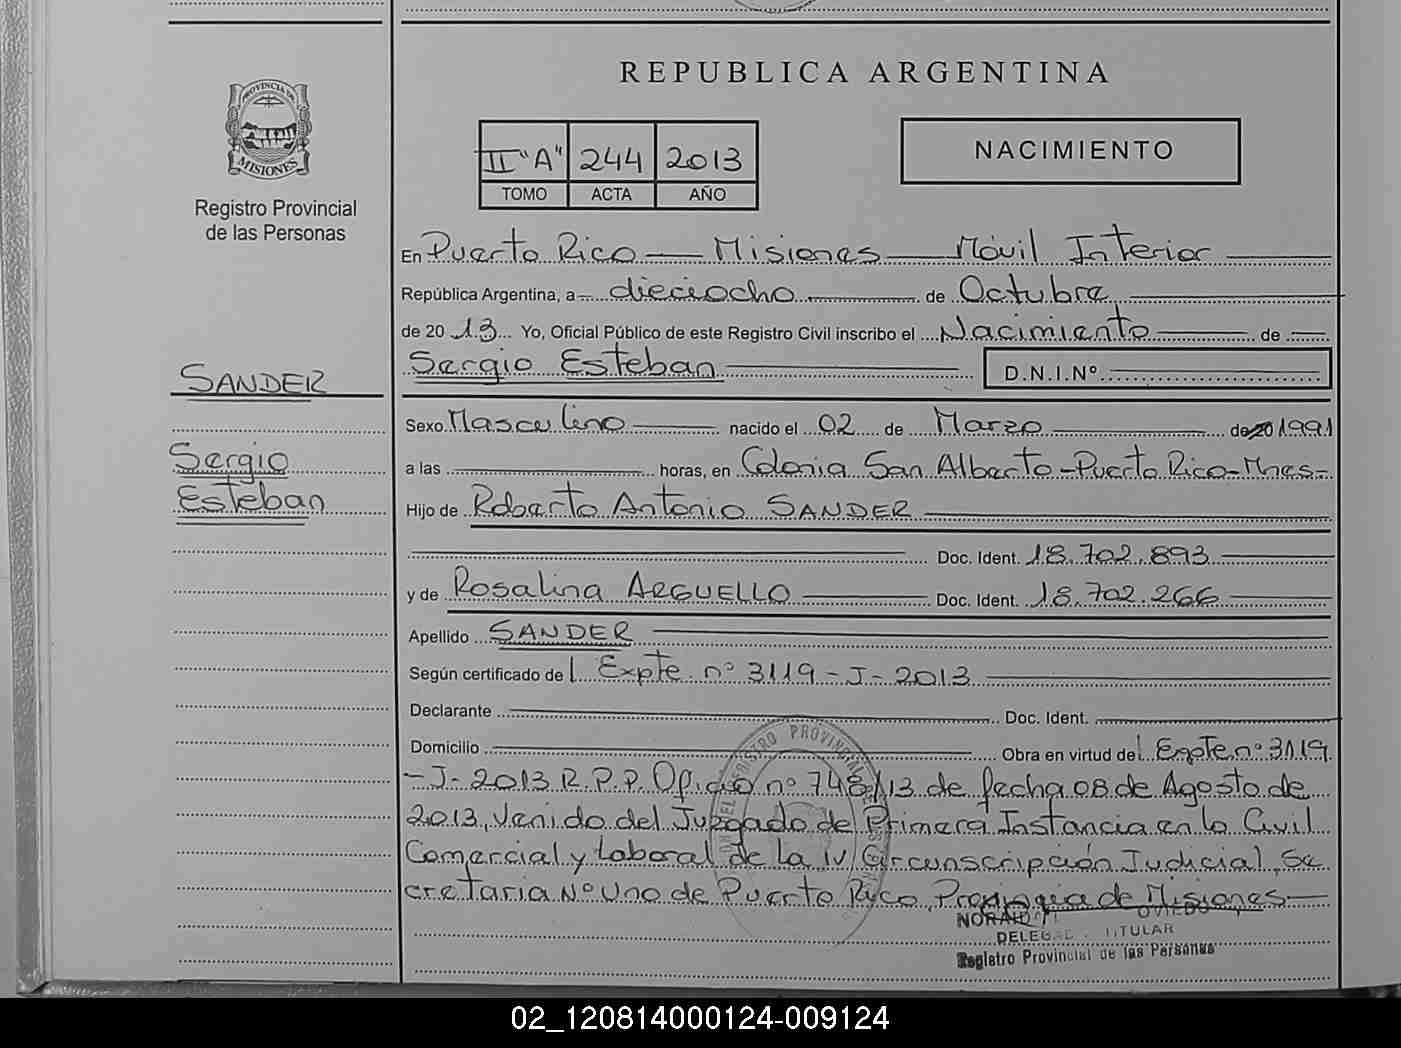 REPUBLICA ARGENTINA
PROVINCIA DE
MISIONES
Registro Provincial
de las Personas
II "A" 244 2013
TOMO ACTA AÑO
NACIMIENTO
En Puerto Rico — Misiones — Móvil Interior
República Argentina, a dieciocho de Octubre
de 20 13 Yo, Oficial Público de este Registro Civil inscribo el Nacimiento de
Sergio Esteban D.N.I.Nº
SANDER
Sergio
Esteban
Sexo Masculino nacido el 02 de Marzo de 20 1991
a las horas, en Colonia San Alberto - Puerto Rico - Mnes -
Hijo de Roberto Antonio SANDER
Doc. Ident. 18.702.893
y de Rosalina ARGUELLO Doc. Ident. 18.702.266
Apellido SANDER
Según certificado de Expte. nº 3119 - J - 2013
Declarante Doc. Ident.
Domicilio Obra en virtud de Expte. nº 3119
- J - 2013 R.P.P. Oficio nº 748/13 de fecha 08 de Agosto de
2013, Venido del Juzgado de Primera Instancia en lo Civil
Comercial y Laboral de la IV Circunscripción Judicial, Se
cretaria Nº Uno de Puerto Rico, Provincia de Misiones
REGISTRO PROVINCIAL DE
OVIEDO
DELEG TITULAR
Registro Provincial de las Personas
02_120814000124-009124